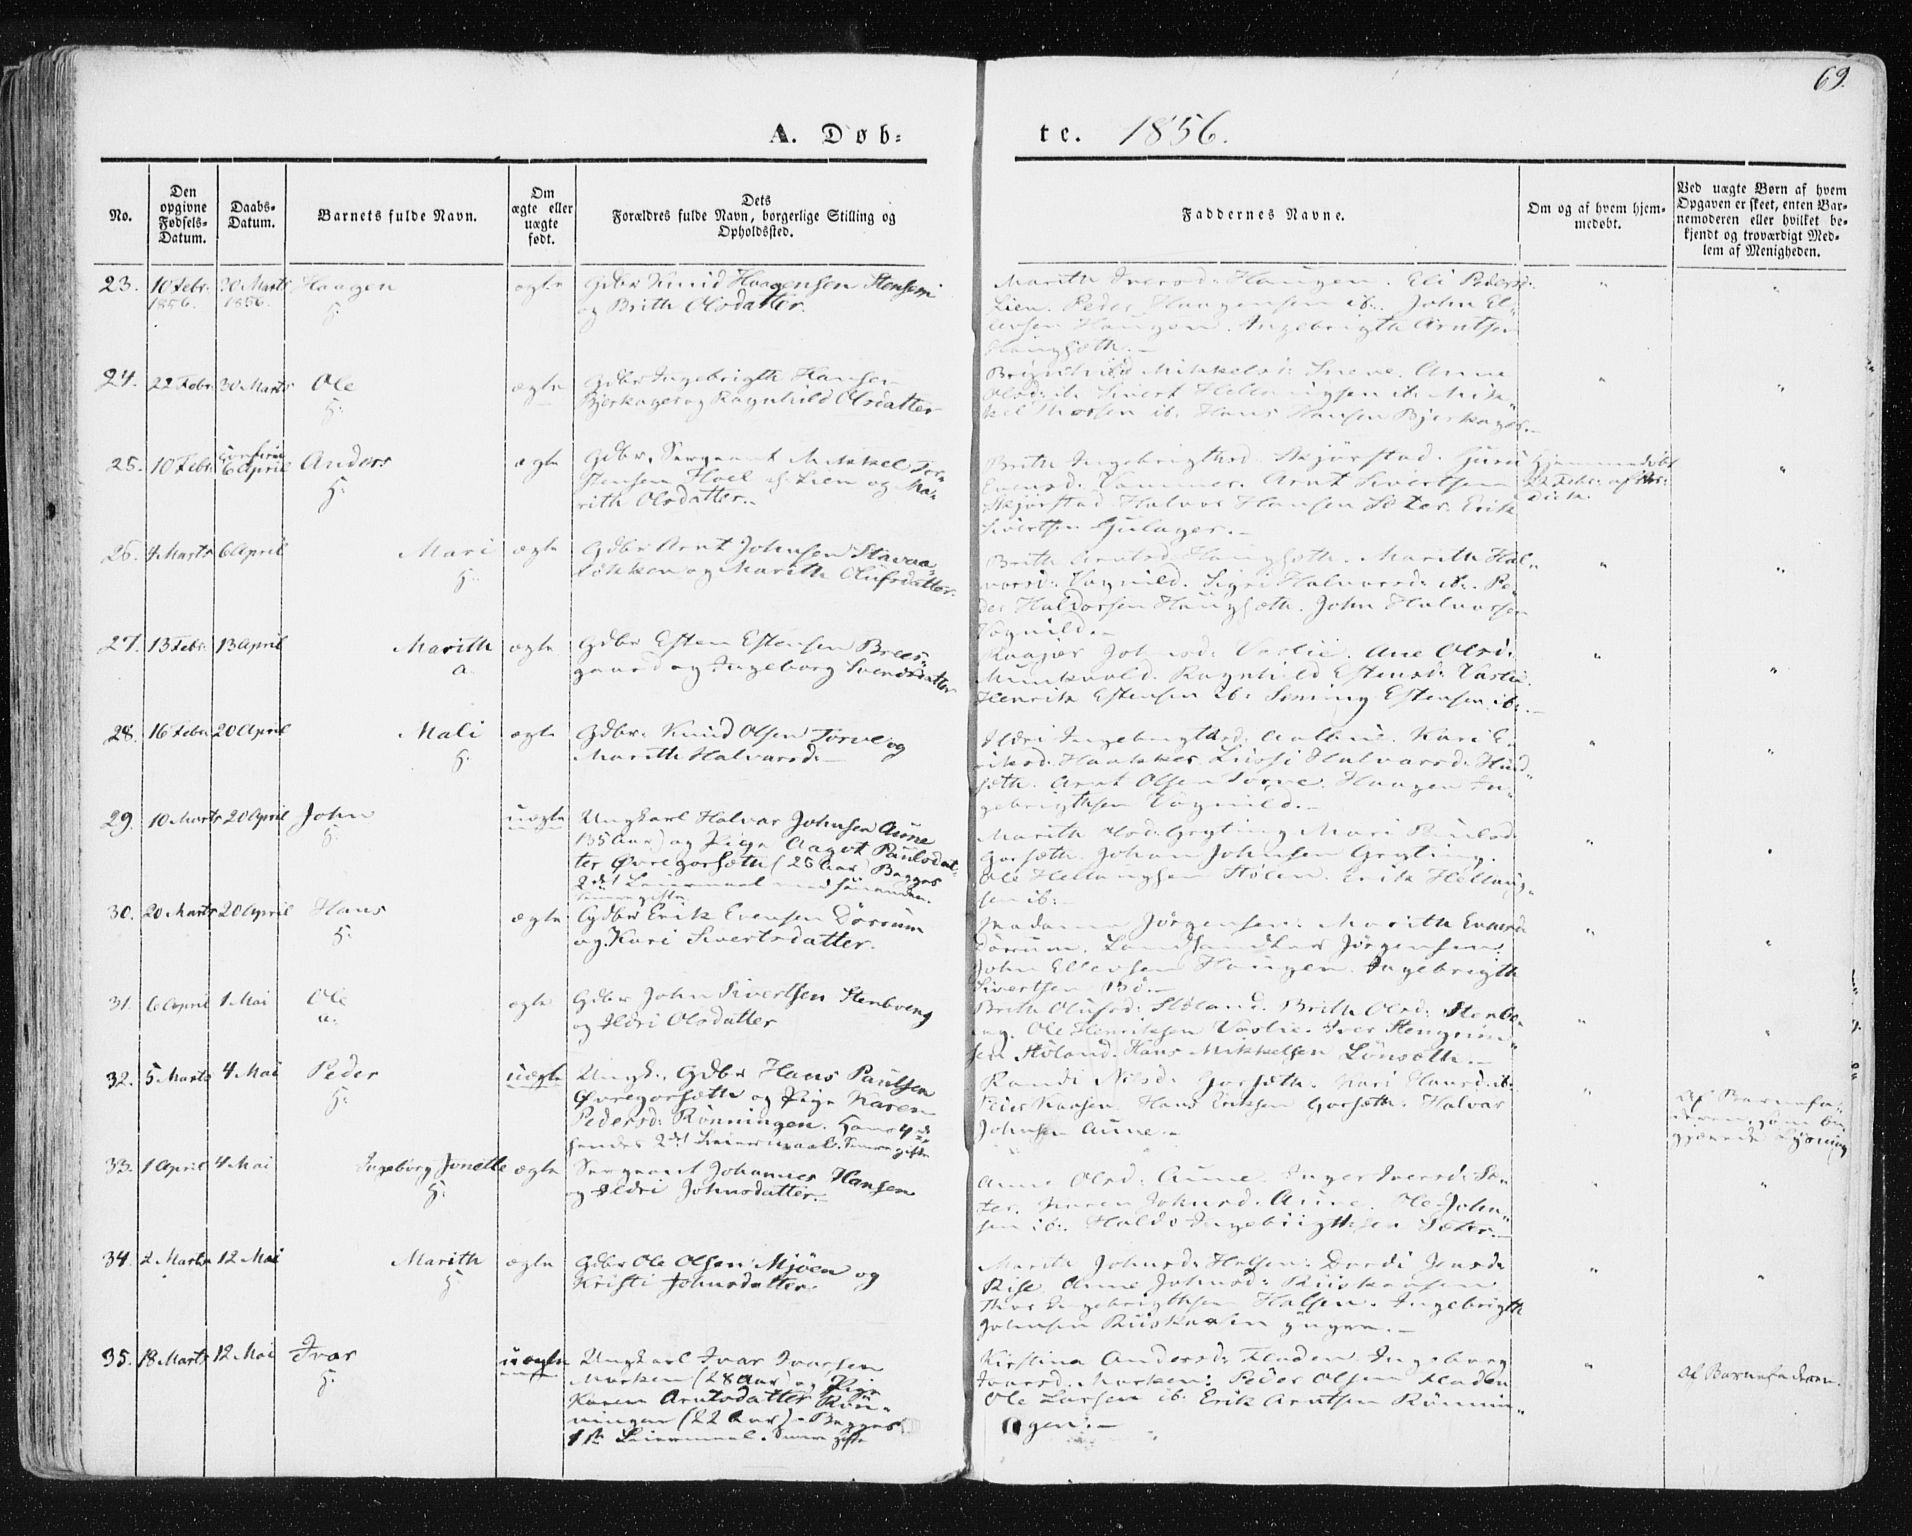 69.
A. Døb=
te. 1856.
No.
Den opgivne Fødsels-Datum.
Daabs-Datum.
Barnets fulde Navn.
Om ægte eller uægte født.
Dets Forældres fulde Navn, borgerlige Stilling og Opholdssted.
Faddernes Navne.
Om og af hvem hjem-medøbt.
Ved uægte Børn af hvem Opgaven er skeet, enten Bar-nemoderen eller hvilket be-kjendt og troværdigt Med-lem af Menigheden.
23. 10 Febr. 1856. 30 Marts 1856. Haagen H. ægte
Gdbr Knud Haagensen Stensem
og Brith Olsdatter.
Marith Iversd: Haugen. Eli Pedersd:
Lien. Peder Haagensen ib:. John El-
lensen Haugen. Ingebrigth Arntsen
Haugsæth.-
24. 22 Febr 30 Marts Ole H: ægte
Gdbr Ingebrigth Hansen
Bjerkager og Ragnhild Olsdatter
Brynhild Mikkelsd: Sneve. Anne
Olsd: ib. Sivert Hellaugsen ib. Mik-
kel Morsen ib: Hans Hansen Bjerkager.-
25. 10 Febr. 6 April Anders H: ægte
Gdbr, Sergeant Mikkel Tor-
stensen Hoel af Lien og Ma-
rith Olsdatter..
Brith Ingebrigthsd. Skjørstad. Guru
Evensd: Arnt Sivertsen
Skjørstad Halvor Hansen Sæter. Erik
Sivertsen Gulager.-
Hjemmedøbt
22 Febr: af
26. 4 Marts 6 April Mari H. ægte
Gdbr Arnt Johnsen Stavaa-
løkken og Marith Olufsdatter.
Brith Arntsd: Haugsæth. Marith Hal-
vorsd: Vognild. Sigri Halvorsd: ib. Pe-
der Haldorsen Haugsæth. John Halvorsen
Vognild.-
27. 13 Febr. 13 April Marith a. ægte
Gdbr Esten Estensen Brees-
gaard og Ingeborg Svendsdatter
Johnsd: Vaslie. Ane Olsd:
Munkvold. Ragnhild Estensd: Vaslie.
Henrik Estensen ib: Seming Estensen ib:.-
28. 16 Febr 20 April Mali H. ægte
Gdbr. Knud Olsen Torve og
Marith Halvorsd:-
Ildri Ingebrigtsd: Aalbue. Kari E-
riksd. Haakker Halvorsd:
sæth. Arnt Olsen Torve. Haagen In-
gebrigthsen Vognild.-
29. 10 Marts 20 April John H: uægte
Ungkarl Halvor Johnsen Aune
(35 Aar) og Pige Aagot Paulsdat-
ter Øvregorsæth (25 Aar) Begges
2det Leiermaal med hinanden.
Marith Olsd: Gryting Mari Paulsd:
Gorsæth. Johan Johnsen Gryting.
Ole Hellaugsen Stølen. Erik Hellaug-
sen ib:-
30. 20 Marts 20 April Hans H: ægte
Gdbr Erik Evensen Dørrum
og Kari Sivertsdatter.
Madame Jørgensen. Marith Evensd:
Dørrum. Landhandler Jørgensen.
John Ellevsen Haugen. Ingebrigth
Sivertsen Bø.-
31. 6 April 1 Mai Ole a. ægte
Gdbr John Sivertsen Stenboeng
og Ildri Olsdatter
Brith Olufsd: Støland. Brith Olsd: Stenbo-
eng. Ole Henriksen Vaslie. Iver Stengrim-
sen Støland. Hans Mikkelsen Lønsæth.-
32. 5 Marts 4 Mai Peder H: uægte
Ungk. Gdbr Hans Paulsen
Øvregorsæth og Pige Karen
Pedersd: Rønningen. Hans 4de
hendes 2det Leiermaal.
Randi Nilsd: Gorsæth. Kari Hansd. ib:
Peder Kaasen. Hans Eriksen Gorsæth. Halvor
Johnsen Aune.-
Af Barnefa-
deren, som be-
gjærede Lysning
33. 1 April 4 Mai Ingeborg Jonette H: ægte
Sergeant Johannes Hansen
og Ildri Johnsdatter.-
Anne Olsd: Aune. Inger Iversd: Sæ-
ter. Karen Johnsd. Aune. Ole John-
sen ib:. Haldo Ingebrigthsen Sæter.-
34. 2 Marts 12 Mai Marith H ægte
Gdbr Ole Olsen Mjøen og
Kristi Johnsdatter.
Marith Johnsd: Halsen: Dordi Jensd:
Rise Anne Johnsd: Riiskaasen
Thor Ingebrigthsen Halsen. Ingebrigth
Johnsen Riiskaasen yngre.-
35. 18 Marts 12 Mai Ivar H: uægte
Ungkarl Ivar Ivarsen
Morken (28 Aar) og Pige
Karen Arntsdatter Røn-
ningen (22 Aar).- Begges
1ste Leiermaal.
Kirstina Andersd: Floden. Ingeborg
Ivarsd: Morken: Peder Olsen Floden
Ole Larsen ib. Erik Arntsen Rønnin-
gen.-
Af Barnefaderen.